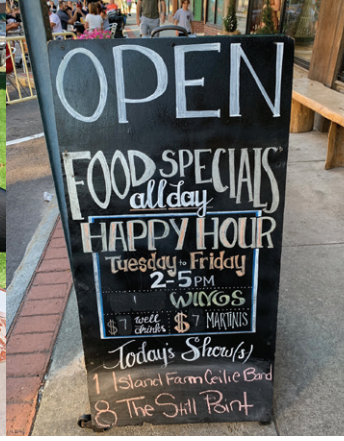 OPEN
FOOD SPECIALS
all day
HAPPY HOUR
Tuesday to Friday
2-5PM
WINGS
$7 well drinks $7 MARTINIS
Today's Show(s)
1 Island Farm Ceilie Band
8 The Still Point